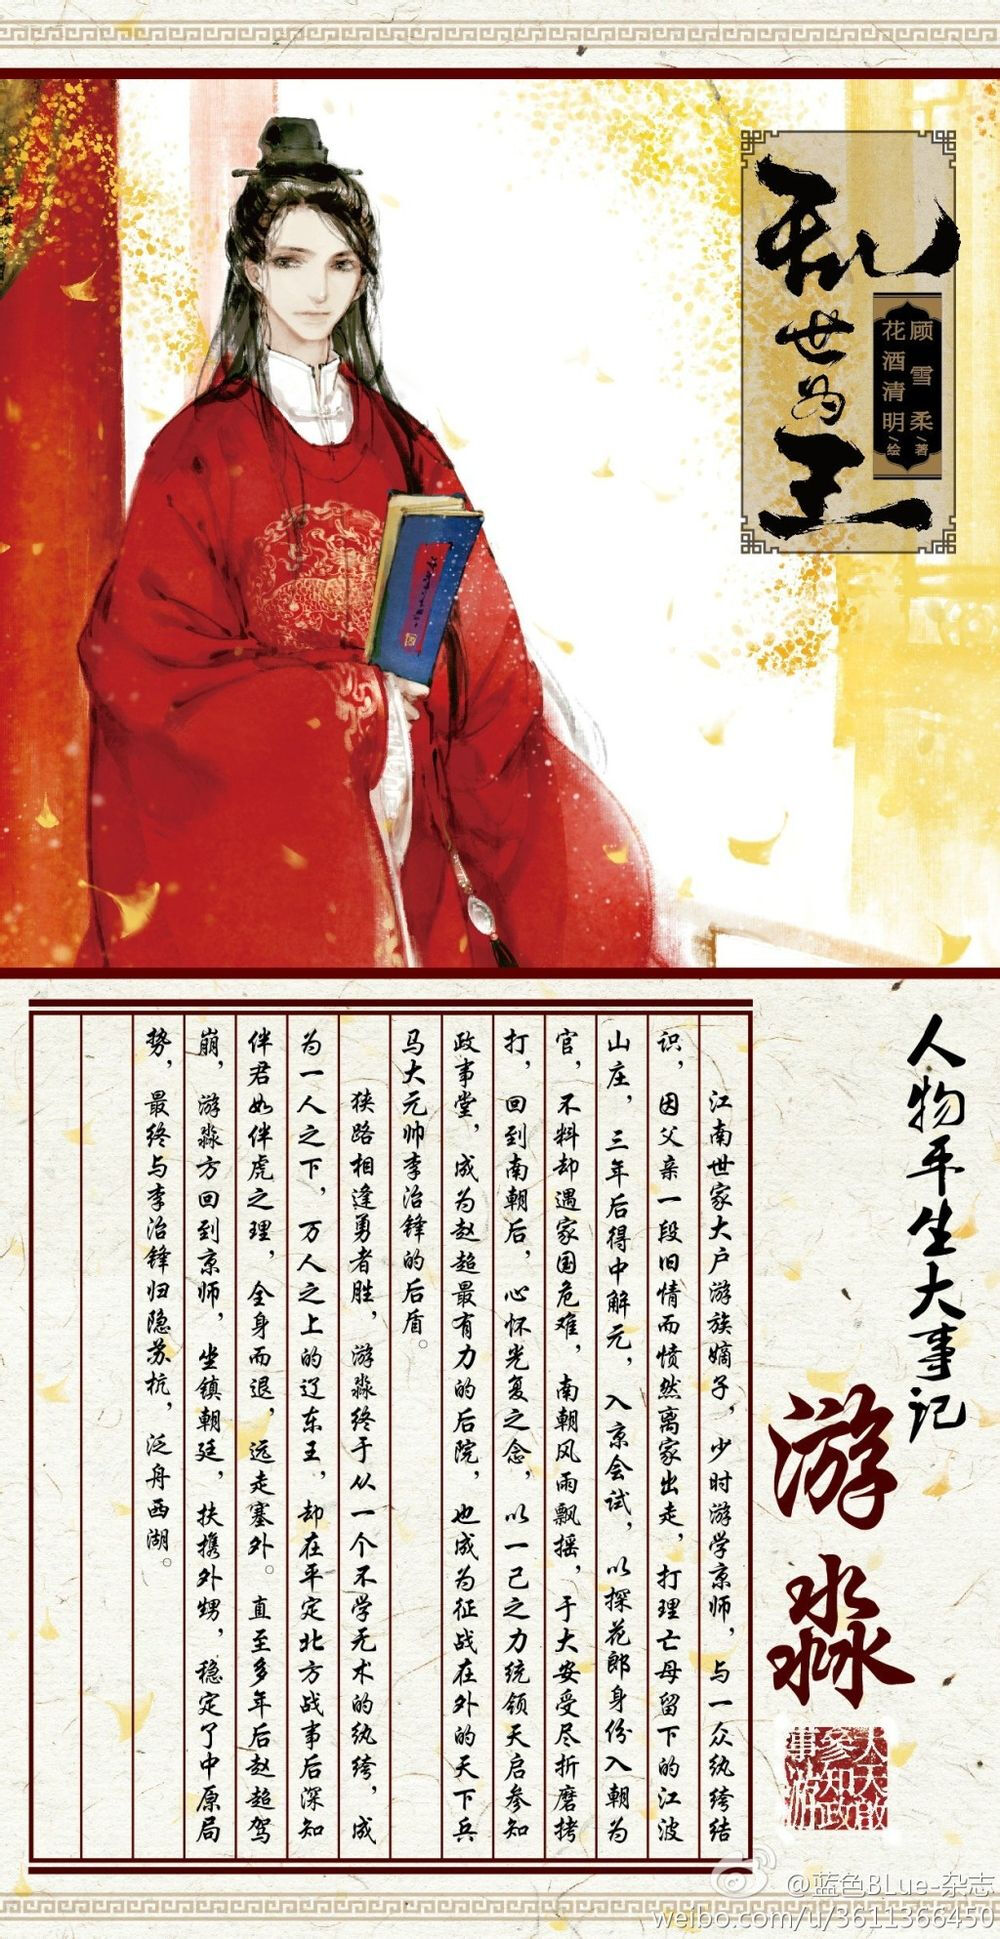 乱世为王
顾雪柔/著
花酒清明/绘
人物平生大事记
游淼
大天启
参知政
事游
江南世家大户游族嫡子，少时游学京师，与一众纨绔结
识，因父亲一段旧情而愤然离家出走，打理亡母留下的江波
山庄，三年后得中解元，入京会试，以探花郎身份入朝为
官，不料却遇家国危难，南朝风雨飘摇，于大安受尽折磨拷
打，回到南朝后，心怀光复之念，以一己之力统领天启参知
政事堂，成为赵超最有力的后院，也成为征战在外的天下兵
马大元帅李治锋的后盾。
狭路相逢勇者胜，游淼终于从一个不学无术的纨绔，成
为一人之下，万人之上的辽东王，却在平定北方战事后深知
伴君如伴虎之理，全身而退，远走塞外。直至多年后赵超驾
崩，游淼方回到京师，坐镇朝廷，扶携外甥，稳定了中原局
势，最终与李治锋归隐苏杭，泛舟西湖。
@蓝色BLue-杂志
weibo.com/u/3611366450